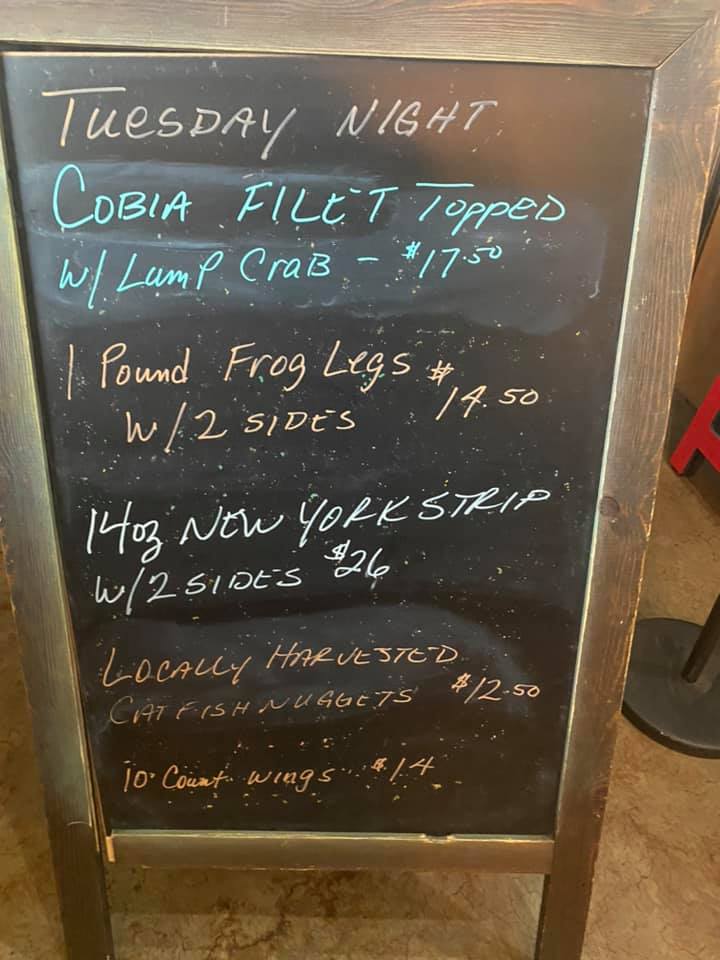 TUESDAY NIGHT
COBIA FILET TOPPED
W/ LUMP CRAB - $17.50
1 Pound Frog Legs $14.50
W/2 SIDES
14oz NEW YORK STRIP
W/2 SIDES $26
LOCALLY HARVESTED
CATFISH NUGGETS $12.50
10 Count wings $14